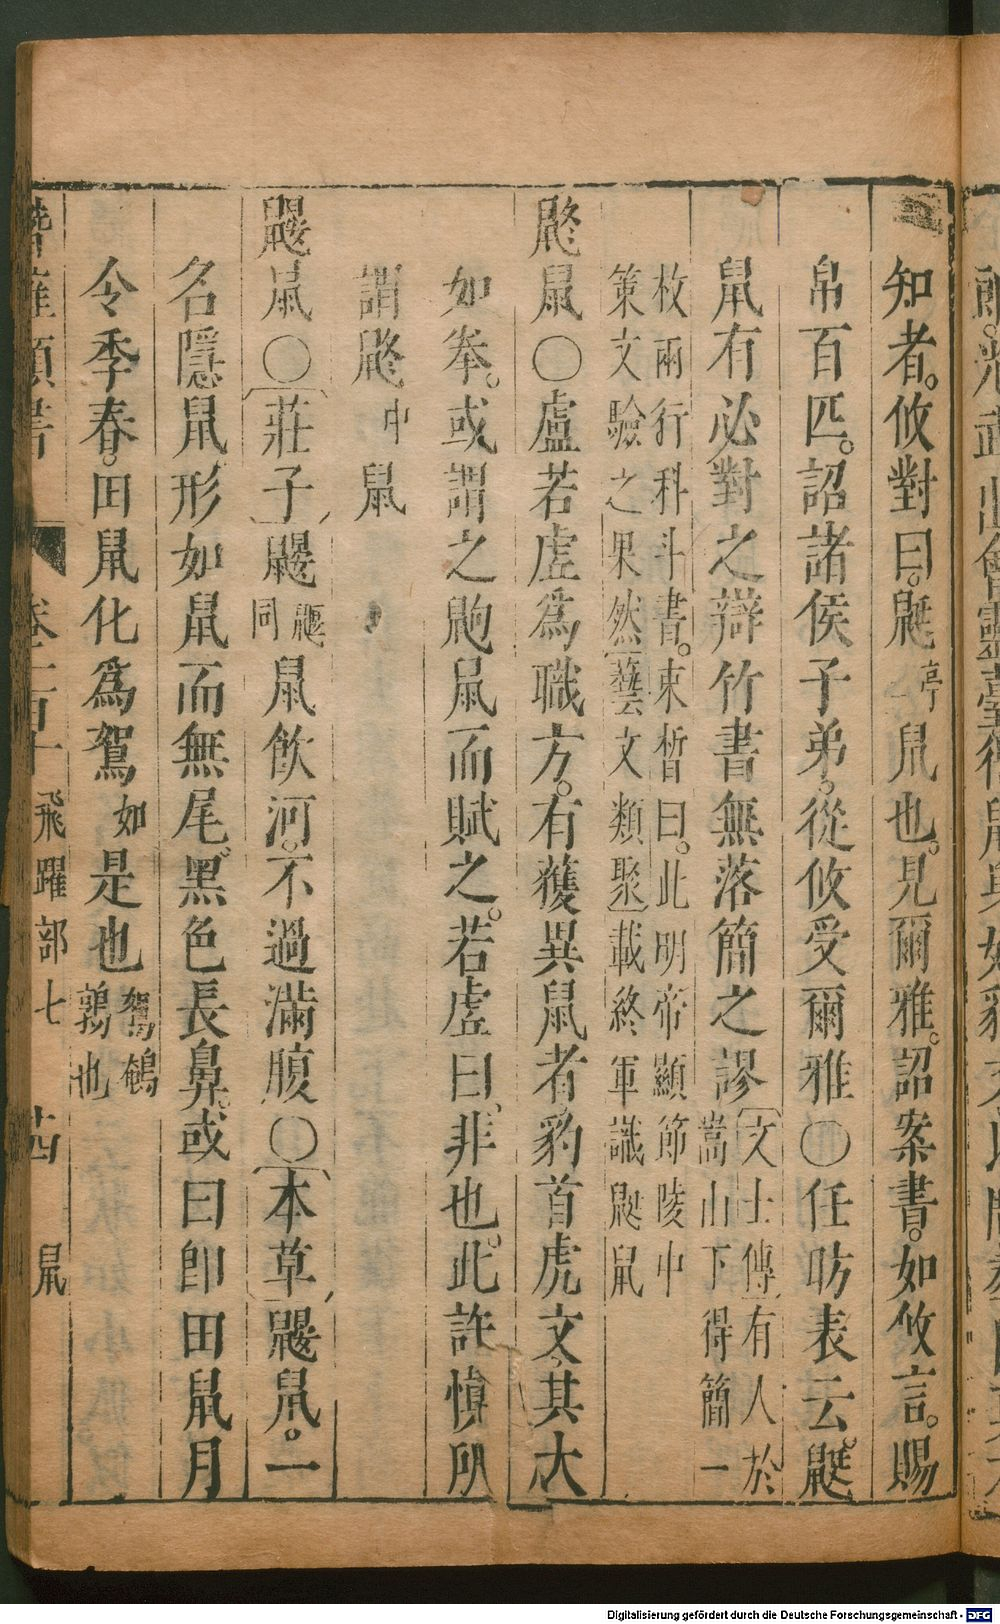 知者。攸對曰。鼮亭鼠也。見爾雅。詔案書。如攸言。賜
帛百匹。詔諸侯子弟。從攸受爾雅○任昉表云。鼮
鼠有必對之辯竹書無落簡之謬〔文士傳〕有人於
嵩山下得簡一
枚兩行科斗書。束晳曰。此明帝顯節陵中
策文驗之果然〔藝文類聚〕載終軍識鼮鼠
鼨鼠○盧若虛爲職方。有獲異鼠者豹首虎文。其大
如拳。或謂之鼩鼠而賦之。若虛曰。非也。此許愼所
謂鼨中鼠
鼴鼠○〔莊子〕鼴鼹同鼠飲河。不過滿腹○〔本草〕鼴鼠。一
名隱鼠形如鼠而無尾。黑色長鼻。或曰卽田鼠月
令季春。田鼠化爲鴽如是也鴽鵪
鶉也
卷二百十 飛躍部七 十四 鼠
Digitalisierung gefördert durch die Deutsche Forschungsgemeinschaft - DFG